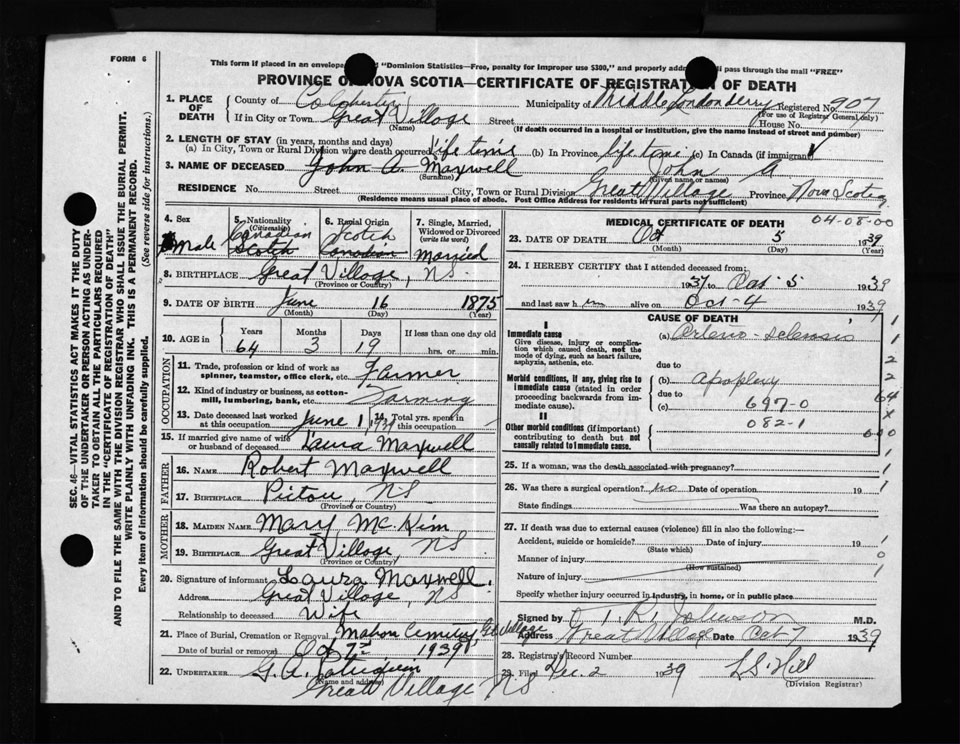 FORM 6
This form if placed in an envelope "Dominion Statistics—Free, penalty for improper use $300," and properly address pass through the mail "FREE"
PROVINCE OF NOVA SCOTIA—CERTIFICATE OF REGISTRATION OF DEATH
1. PLACE OF DEATH
County of Colchester Municipality of Middle Londonderry Registered No. 907
(For use of Registrar General only)
If in City or Town Great Village Street House No.
(Name) (If death occurred in a hospital or institution, give the name instead of street and number)
2. LENGTH OF STAY (in years, months and days)
(a) In City, Town or Rural Division where death occurred life time (b) In Province life time (c) In Canada (if immigrant)
3. NAME OF DECEASED John A. Maxwell John A
(Surname) (Given name or names)
RESIDENCE No. Street City, Town or Rural Division Great Village Province Nova Scotia
(Residence means usual place of abode. Post Office Address for residents in rural parts not sufficient)
4. Sex Male
5. Nationality (Citizenship) Canadian Scotch
6. Racial Origin Scotch Canadian
7. Single, Married, Widowed or Divorced (write the word) Married
8. BIRTHPLACE Great Village, NS
(Province or Country)
9. DATE OF BIRTH June 16 1875
(Month) (Day) (Year)
10. AGE in Years Months Days If less than one day old
64 3 19 hrs. or min.
OCCUPATION
11. Trade, profession or kind of work as spinner, teamster, office clerk, etc. Farmer
12. Kind of industry or business, as cotton-mill, lumbering, bank, etc. Farming
13. Date deceased last worked at this occupation June 1 1939 14. Total yrs. spent in this occupation
15. If married give name of wife or husband of deceased Laura Maxwell
FATHER
16. NAME Robert Maxwell
17. BIRTHPLACE Pictou, NS
(Province or Country)
MOTHER
18. MAIDEN NAME Mary McKim
19. BIRTHPLACE Great Village, NS
(Province or Country)
20. Signature of informant Laura Maxwell.
Address Great Village, NS
Relationship to deceased Wife
21. Place of Burial, Cremation or Removal Mahon Cemetery, Gt Village
Date of burial or removal Oct 7 1939
22. UNDERTAKER G. A.
(Name and address)
Great Village NS
MEDICAL CERTIFICATE OF DEATH
04-08-00
23. DATE OF DEATH Oct 5 1939
(Month) (Day)
24. I HEREBY CERTIFY that I attended deceased from:
1937 to Oct 5 1939
and last saw h im alive on Oct-4 1939
CAUSE OF DEATH
I
Immediate cause
Give disease, injury or complication which caused death, not the mode of dying, such as heart failure, asphyxia, asthenia, etc.
(a) Arterio-sclerosis
due to
Morbid conditions, if any, giving rise to immediate cause (stated in order proceeding backwards from immediate cause).
(b) apoplexy
due to
(c) 697-0
082-1
II
Other morbid conditions (if important) contributing to death but not causally related to immediate cause.
1
1
2
2
64
x
600
25. If a woman, was the death associated with pregnancy? 1
26. Was there a surgical operation? no Date of operation 19 1
State findings Was there an autopsy?
27. If death was due to external causes (violence) fill in also the following:—
Accident, suicide or homicide? Date of injury 19 1
(State which)
Manner of injury 0
(How sustained)
Nature of injury 1
Specify whether injury occurred in industry, in home, or in public place
Signed by T. R. Johnson M.D.
Address Great Village Date Oct 7 1939
28. Registrar's Record Number
29. Filed Dec. 2 1939 L. S. Hill
(Division Registrar)
SEC. 46—VITAL STATISTICS ACT MAKES IT THE DUTY
OF THE UNDERTAKER OR PERSON ACTING AS UNDERTAKER
TO OBTAIN ALL THE PARTICULARS REQUIRED
IN THE "CERTIFICATE OF REGISTRATION OF DEATH"
AND TO FILE THE SAME WITH THE DIVISION REGISTRAR WHO SHALL ISSUE THE BURIAL PERMIT.
WRITE PLAINLY WITH UNFADING INK. THIS IS A PERMANENT RECORD.
Every item of information should be carefully supplied. (See reverse side for instructions.)